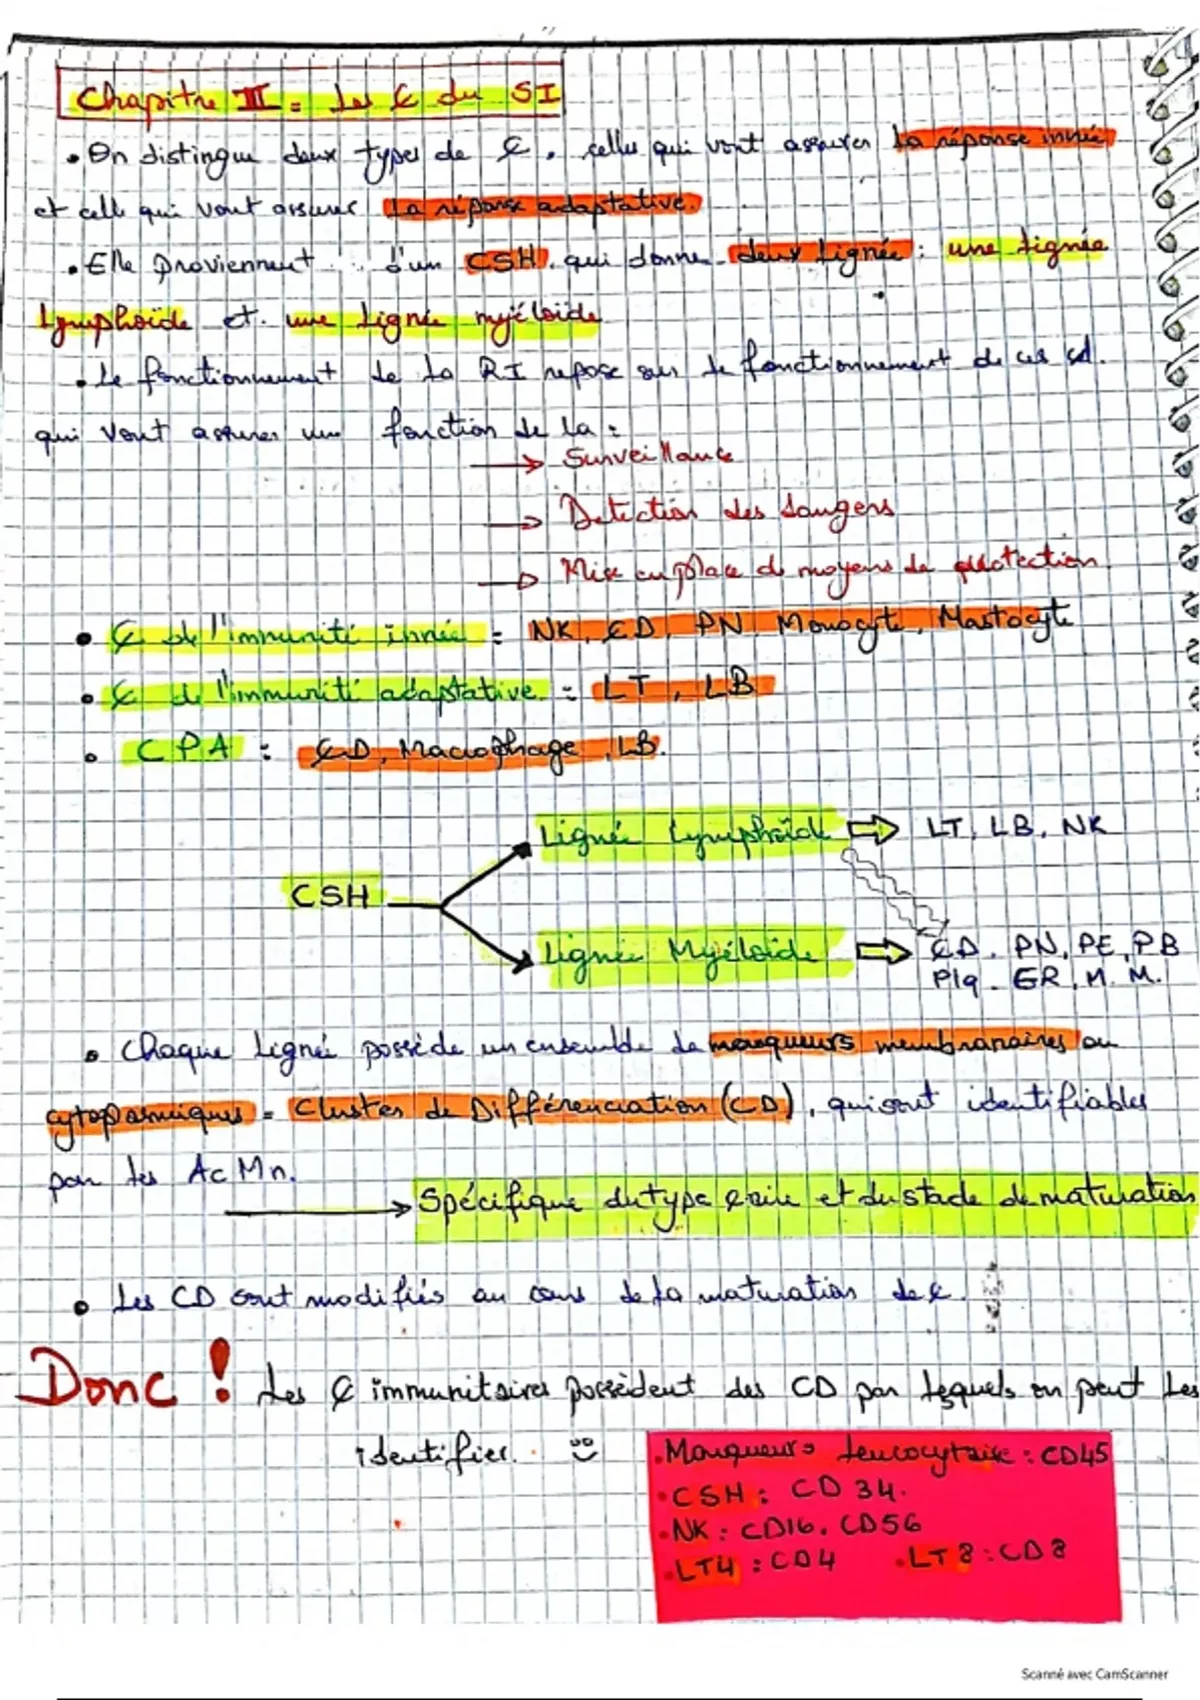 Chapitre III = Les ₵ du SI
• On distingue deux types de ₵, celles qui vont assurer la réponse innée
et celle qui vont assurer la réponse adaptative.
• Elle proviennent d'un CSH, qui donne deux lignée : une lignée
Lymphoïde et une lignée myéloïde
• Le fonctionnement de la RI repose sur le fonctionnement de ces
qui vont assurer une fonction de la :
→ Surveillance
→ Detection des dangers
→ Mise en place de moyens de protection
• ₵ de l'immunité innée = NK, ₵D, PN, Monocyte, Mastocyte
• ₵ de l'immunité adaptative = LT, LB
• CPA : ₵D, Macrophage, LB.
Lignée Lymphoïde ⇒ LT, LB, NK
CSH
Lignée Myéloïde ⇒ ₵D, PN, PE, PB
Plq, GR, M. M.
• Chaque lignée possède un ensemble de marqueurs membranaires ou
cytoplasmiques = Cluster de Différenciation (CD), qui sont identifiables
par les Ac Mn.
→ Spécifique du type ₵aire et du stade de maturation
• Les CD sont modifiés au cours de la maturation de ₵
Donc ! Les ₵ immunitaires possèdent des CD par lequels on peut les
identifier.
• Marqueurs leucocytaire : CD45
• CSH : CD 34.
• NK : CD16, CD56
• LT4 : CD4 • LT8 : CD8
Scanné avec CamScanner